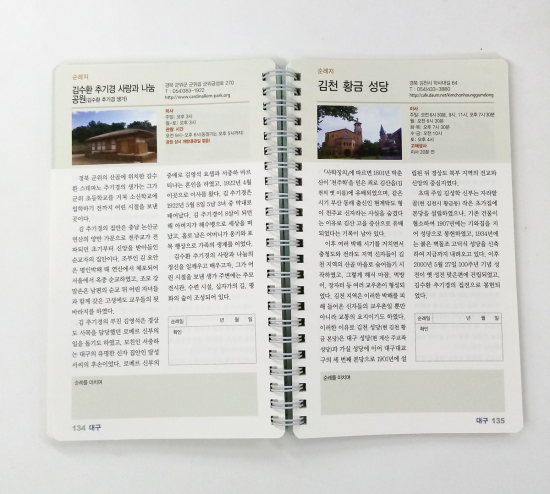 순례지
김수환 추기경 사랑과 나눔
공원(김수환 추기경 생가)
경북 군위군 군위읍 군위금성로 270
T : 054)383-1922
http://www.cardinalkim-park.org
미사
주일: 오후 3시
월~토: 오후 3시
관람 시간
경북 군위의 산골에 위치한 김수
환 스테파노 추기경의 생가는 그가
군위 초등학교를 거쳐 소신학교에
입학하기 전까지 어린 시절을 보낸
곳이다.
김 추기경의 집안은 충남 논산군
연산의 양반 가문으로 천주교가 전
파되던 초기부터 신앙을 받아들인
순교자의 집안이다. 조부인 김 요안
은 병인박해 때 연산에서 체포되어
서울에서 옥중 순교하였고, 조모 강
말손은 남편의 순교 뒤 어린 자녀들
과 함께 갖은 고생에도 교우들의 뒷
바라지를 하였다.
김 추기경의 부친 김영석은 경상
도 사목을 담당했던 로베르 신부의
일을 돕기도 하였고, 모친인 서중하
는 대구의 유명한 신자 집안인 달성
서씨의 후손이었다. 로베르 신부의
중매로 김영석 요셉과 서중하 마르
티나는 혼인을 하였고, 1922년 4월
이곳으로 이사를 왔다. 김 추기경은
1922년 5월 8일 5남 3녀 중 막내로
태어났다. 김 추기경이 8살이 되던
해 아버지가 해수병으로 세상을 떠
났고, 홀로 남은 어머니가 옹기와 포
목 행상으로 가족의 생계를 이었다.
김수환 추기경의 사랑과 나눔의
정신을 일깨우고 배우고자, 그가 어
린 시절을 보낸 생가 주변에는 추모
전시관, 수련 시설, 십자가의 길, 평
화의 숲이 조성되어 있다.
순례일
년 월 일
확인
순례를 마치며
134 대구
순례지
김천 황금 성당
경북 김천시 학사대길 64
T : 054)433-3880
미사
주일: 오전 6시 30분, 9시, 11시, 오후 7시 30분
월: 오전 6시 30분
화·목: 오후 7시 30분
수·금: 오전 10시
토: 오후 4시
고해성사
미사 20분 전
『사학징의』에 따르면 1801년 하춘
산이 '천주학'을 믿은 죄로 김산읍(김
천의 옛 이름)에 유배되었으며, 같은
시기 부산 동래 출신인 현계탁도 형
이 천주교 신자라는 사실을 숨겼다
는 이유로 김산 고을 증산으로 유배
되었다는 기록이 남아 있다.
이후 여러 박해 시기를 거치면서
충청도와 전라도 지역 신자들이 김
천 지역의 산골 마을로 숨어들기 시
작하였고, 그렇게 해서 마잠, 먹방
이, 장자터 등 여러 교우촌이 형성되
었다. 김천 지역은 이러한 박해를 피
해 들어온 신자들의 교우촌일 뿐만
아니라 교통의 요지이기도 하였다.
이러한 이유로 김천 성당(현 김천 황
금 본당)은 대구 성당(현 계산 주교좌
성당)과 가실 성당에 이어 대구대교
구의 세 번째 본당으로 1901년에 설
립된 뒤 경상도 북부 지역의 전교와
신앙의 중심지였다.
초대 주임 김성학 신부는 자라팔
골(현 김천 황금동) 작은 초가집에
본당을 설립하였으나, 기존 건물이
협소하여 1907년에는 기와집을 지
어 성당으로 봉헌하였고, 1934년에
는 붉은 벽돌로 고딕식 성당을 신축
하여 지금까지 내려오고 있다. 이후
2000년 5월 27일 100주년 기념 성
전이 옛 성전 맞은편에 건립되었고,
김수환 추기경의 집전으로 봉헌되
었다.
순례일
년 월 일
확인
순례를 마치며
대구 135